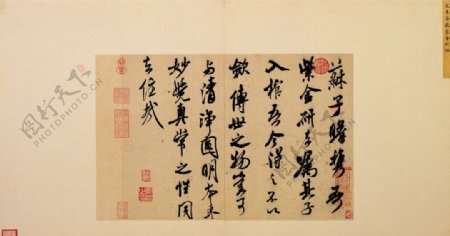 蘇子瞻携吾
紫金研去囑其子
入棺吾今得之不以
斂傳世之物豈可
与清淨圓明本来
妙覺真常之性同
去住哉
图行天下